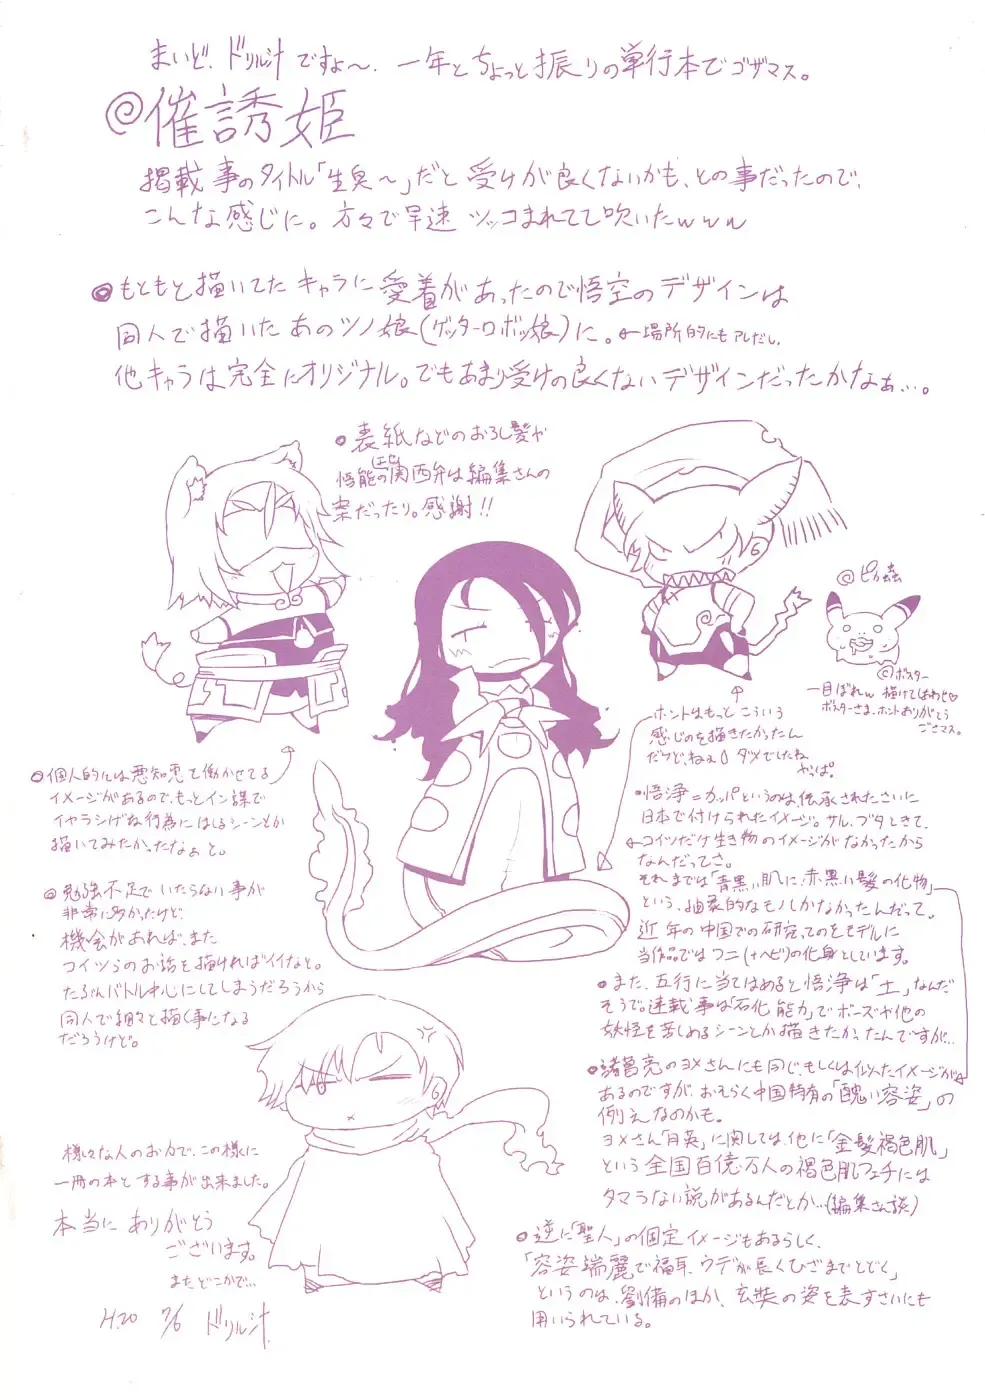 まいど、ドリル汁ですよ～、一年とちょっと振りの単行本でゴザマス。
@催誘姫
掲載事のタイトル「生臭～」だと受けが良くないかも、との事だったので、
こんな感じに。方々で早速ツッコまれてて吹いたwww
もともと描いてたキャラに愛着があったので悟空のデザインは
同人で描いたあのツノ娘(ゲッターロボッ娘)に。←場所的にもアレだし、
他キャラは完全にオリジナル。でもあまり受けの良くないデザインだったかなぁ…。
表紙などのおろし髪や
悟能の(エセ)関西弁は編集さんの
案だったり。感謝!!
@ピカ蟲
©ボスター
一目ぼれw 描けてしあわせ♡
ボスターさま、ホントありがとう
ござマス。
ホントはもっとこういう
感じのを描きたかったん
だけど、ねぇ。ダメでしたね
やっぱ。
個人的には悪知恵を働かせてる
イメージがあるので、もっとイン謀で
イヤラシげな行為にはしるシーンとか
描いてみたかったなぁと。
勉強不足でいたらない事が
非常に多かったけど
機会があれば、また
コイツらのお話を描ければイイなと。
たぶんバトル中心にしてしまうだろうから
同人で細々と描く事になる
だろうけど。
悟浄=カッパというのは、伝承されたさいに
日本で付けられたイメージ。サル、ブタときて、
コイツだけ生き物のイメージがなかったから
なんだってさ。
それまでは「青黒い肌に、赤黒い髪の化物」
という、抽象的なモノしかなかったんだって。
近年の中国での研究、てのをモデルに
当作品ではワニ(+ヘビ)の化身としています。
また、五行に当てはめると悟浄は「土」なんだ
そうで。連載事は「石化能力」でボーズや他の
妖怪を苦しめるシーンとか描きたかったんですが…
諸葛亮のヨメさんにも同じ、もしくは似たイメージが
あるのですが、おそらく中国特有の「醜い容姿」の
例えなのかも。
ヨメさん「月英」に関しては、他に「金髪褐色肌」
という全国百億万人の褐色肌フェチには
タマラない説があるんだとか…(編集さん談)
逆に「聖人」の固定イメージもあるらしく、
「容姿端麗で福耳、ウデが長くひざまでとどく」
というのは、劉備のほか、玄奘の姿を表すさいにも
用いられている。
様々な人のお力で、この様に
一冊の本とする事が出来ました。
本当にありがとう
ございます。
またどこかで…
H.20 7/6 ドリル汁